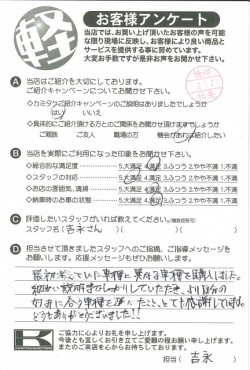 軽
お客様アンケート
当店では、お買い上げ頂いたお客様の声を可能
な限り現場に反映し、お客様により良い商品と
サービスを提供する事に努めています。
大変お手数ですが是非お声をお聞かせ下さい。
A 当店はご紹介を大切にしております。
ご紹介キャンペーンについてお聞かせ下さい。
◇カミタウンよりご紹介キャンペーンの説明がありましたでしょうか
はい いいえ
◇具体的にご紹介頂ける方とのご関係をお聞かせ頂けますでしょうか
ご親族 ご友人 職場の方 機会があれば紹介したい
B 当店を実際にご利用になった印象をお聞かせ下さい。
◇総合的な満足度 5.大満足 4.満足 3.ふつう 2.やや不満 1.不満
◇スタッフの対応 5.大満足 4.満足 3.ふつう 2.やや不満 1.不満
◇お店の雰囲気、清掃 5.大満足 4.満足 3.ふつう 2.やや不満 1.不満
◇納車時のお車の状態 5.大満足 4.満足 3.ふつう 2.やや不満 1.不満
C 評価したいスタッフがいれば教えてください。(複数回答可)
スタッフ名( 吉永さん )
D 担当させて頂きましたスタッフへのご指摘、ご指導メッセージ
もぜひお願いします。応援メッセージもお待ちしております。
最初考えていた車種と異なる車種を購入しました。
細かい説明をしっかりしていただき、より自分の
好みに合う車種を
とても感謝しております。
どうもありがとうございました!!
K
ご協力に心よりお礼を申し上げます。
今後とも宜しくお引き立てご愛顧の程お願い申し上げます。
またのご来店を心からお待ちしております。
担当( 吉永 )